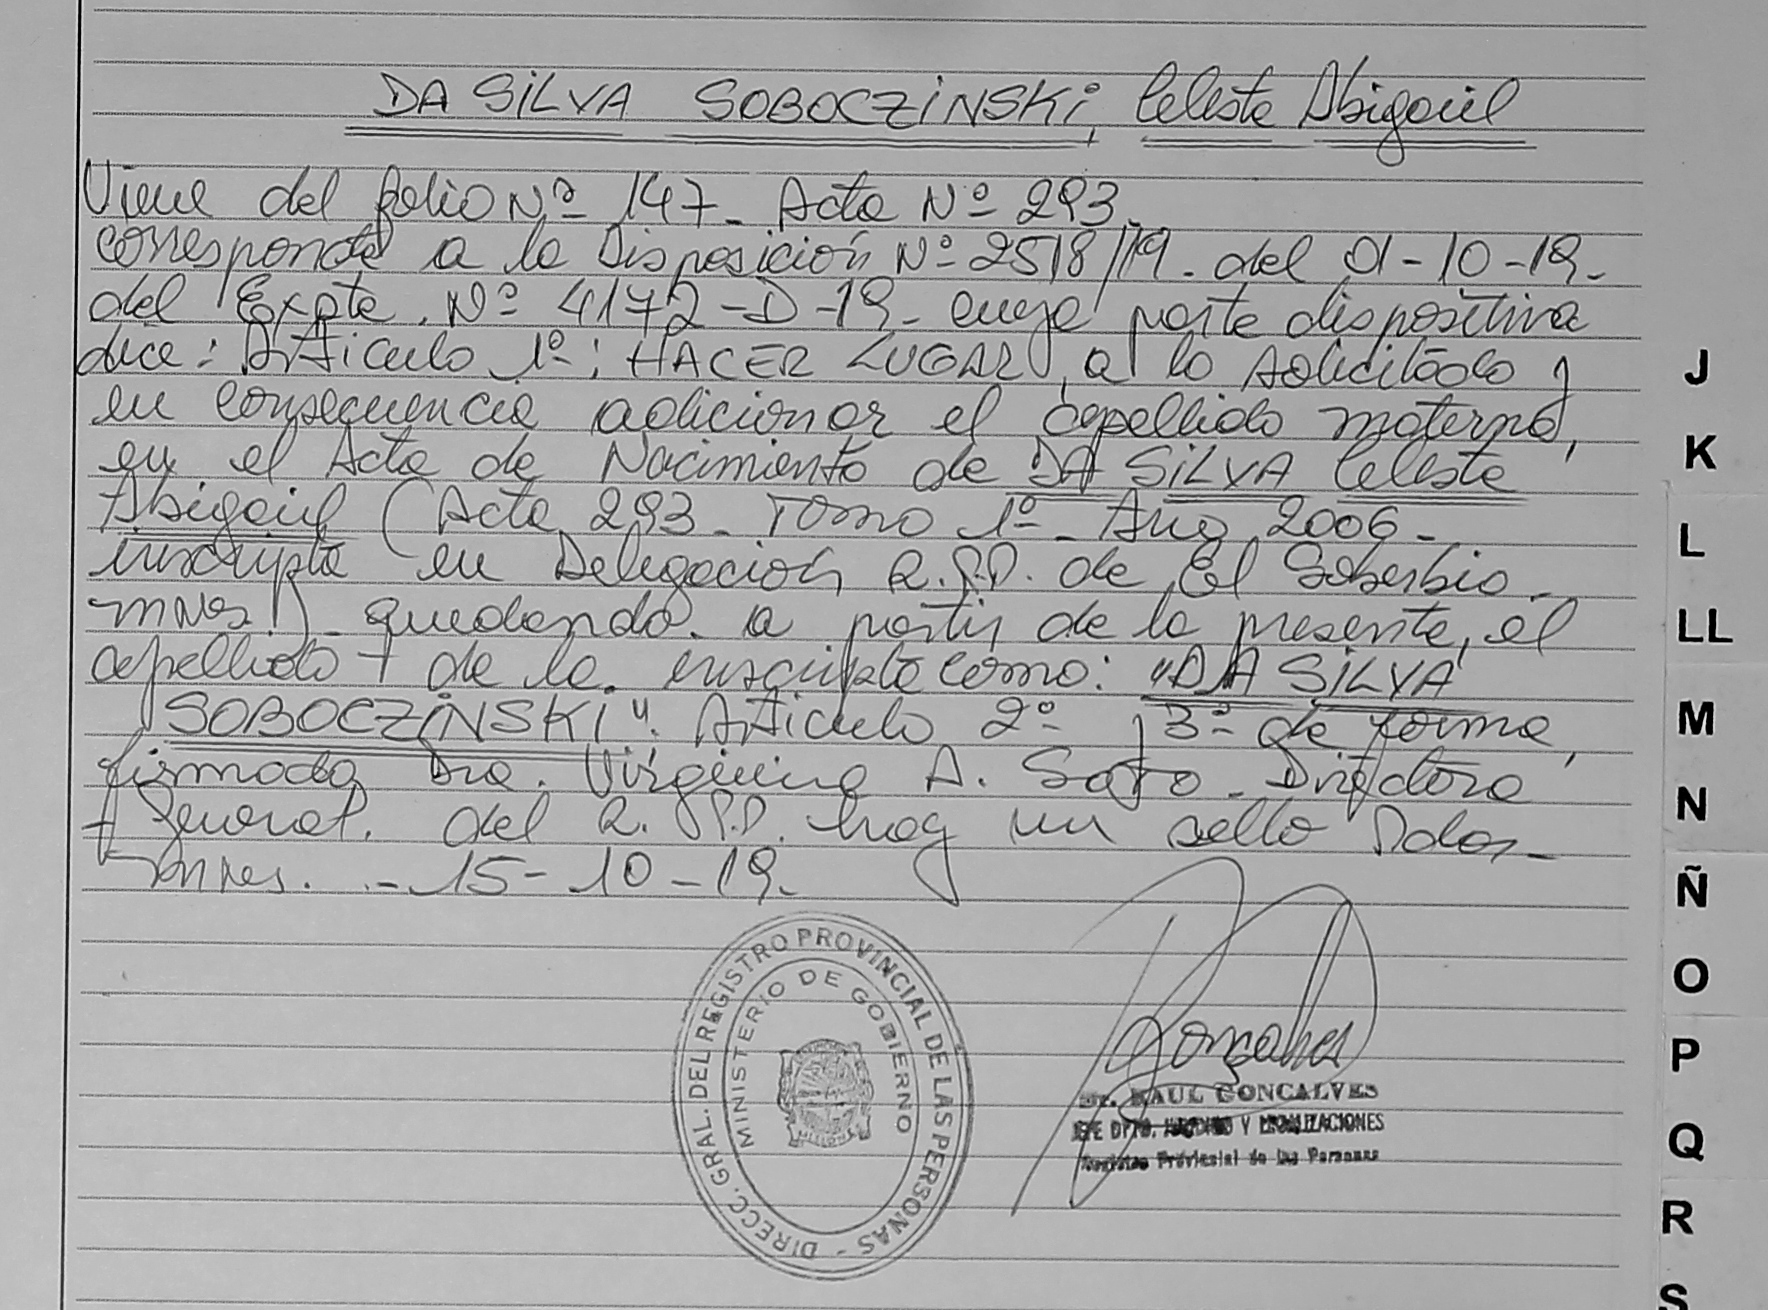 DA SILVA SOBOCZINSKI, Celeste Abigail
Viene del folio Nº 147_ Acta Nº 293_
corresponde a la Disposición Nº 2518/19. del 01-10-19_
del Expte. Nº 4172-D-19_ cuya parte dispositiva
dice: Artículo 1º: HACER LUGAR, a lo solicitado y
en consecuencia adicionar el apellido materno,
en el Acta de Nacimiento de DA SILVA Celeste
Abigail (Acta 293_ Tomo 1º_ Año 2006_
inscripta en Delegación R.P.P. de El Soberbio_
Mnes)_ quedando a partir de la presente, el
apellido de la inscripta como: "DA SILVA
SOBOCZINSKI". Artículo 2º y 3º de forma,
firmado Dra. Virginia A. Directora
General. del R.P.P. hay un sello
Mnes. _ 15-10-19_
DIRECC. GRAL. DEL REGISTRO PROVINCIAL DE LAS PERSONAS -
MINISTERIO DE GOBIERNO
MISIONES
Goncalves
Dr. RAUL GONCALVES
JEFE DPTO. JURIDICO Y LEGALIZACIONES
Registro Provincial de las Personas
J
K
L
LL
M
N
Ñ
O
P
Q
R
S